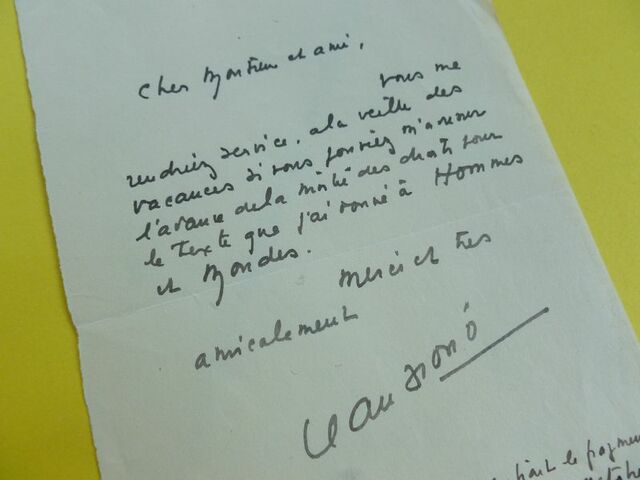 Cher Monsieur et ami,
vous me
rendriez service, à la veille des
vacances si vous pouviez m'avancer
l'avance de la moitié des droits pour
le texte que j'ai donné à Hommes
et Mondes.
Merci et très
amicalement
Jean Giono
fait le payement